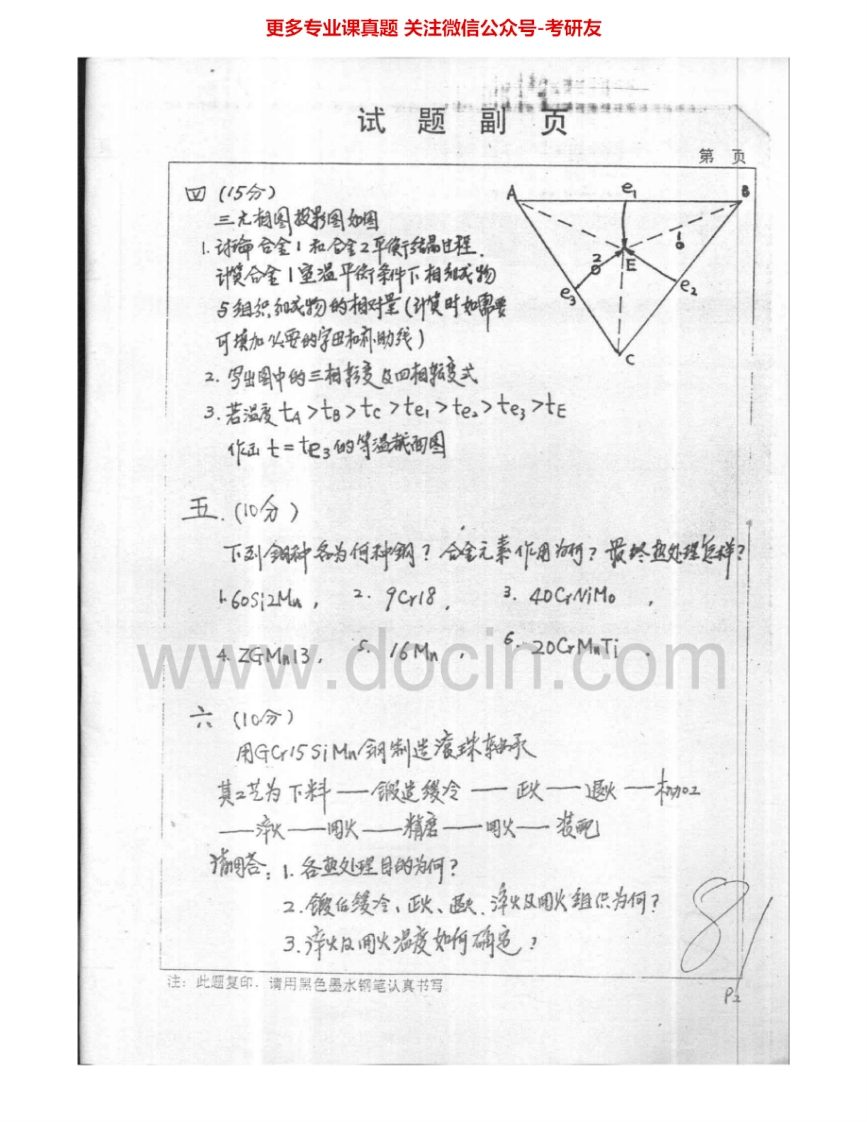 更多专业课真题 关注微信公众号-考研友
试 题 副 页
第 页
四 (15分)
三元相图投影图如图
1. 讨论合金1和合金2平衡结晶过程.
计算合金1室温平衡条件下相组成物
与组织组成物的相对量(计算时如需要
可填加必要的字母和补助线)
2. 写出图中的三相转变及四相转变式
3. 若温度 tA>tB>tC>te1>te2>te3>tE
作出 t=te3的等温截面图
A
e1
B
1
2
E
e3
e2
C
五. (10分)
下列钢种各为何种钢?合金元素作用为何?最终热处理怎样?
1. 60Si2Mn, 2. 9Cr18, 3. 40CrNiMo,
4. ZGMn13, 5. 16Mn, 6. 20CrMnTi.
www.docin.com
六 (10分)
用GCr15SiMn钢制造滚珠轴承
其工艺为下料——锻造缓冷——正火——退火——机加工
——淬火——回火——精磨——回火——装配
请回答: 1. 各热处理目的为何?
2. 锻后缓冷、正火、退火、淬火及回火组织为何?
3. 淬火及回火温度如何确定?
注: 此题复印,请用黑色墨水钢笔认真书写
P2